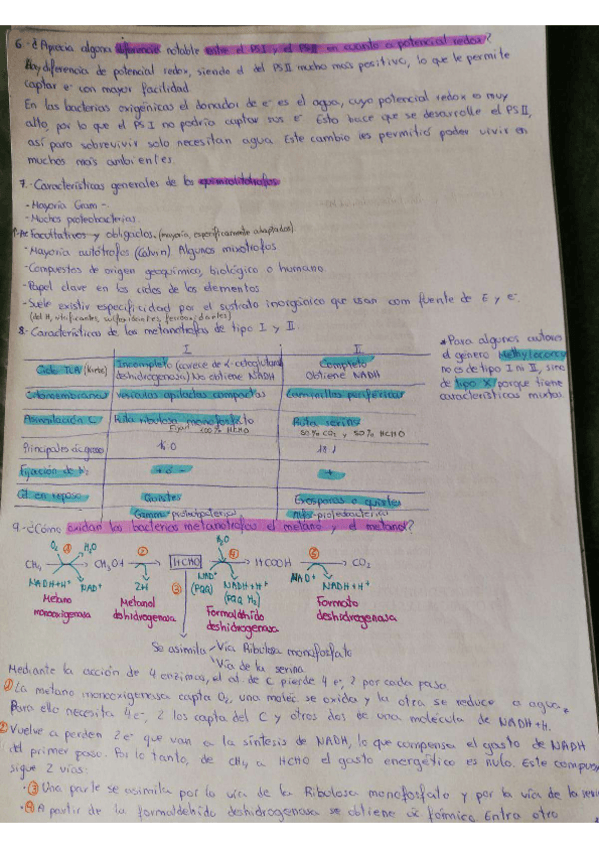 6.- ¿Aprecia alguna diferencia notable entre el PSI y el PSII en cuanto a potencial redox?
Hay diferencia de potencial redox, siendo el del PSII mucho más positivo, lo que le permite
captar e⁻ con mayor facilidad
En las bacterias oxigénicas el donador de e⁻ es el agua, cuyo potencial redox es muy
alto, por lo que el PSI no podría captar sus e⁻. Esto hace que se desarrolle el PSII,
así para sobrevivir solo necesitan agua. Este cambio les permitió poder vivir en
muchos más ambientes.
7.- Características generales de los quimiolitotrofos
- Mayoría Gram -.
- Muchos proteobacterias.
Facultativos y obligados. (mayoría, específicamente adaptados)
- Mayoría autótrofos (Calvin). Algunos mixotrofos
- Compuestos de origen geoquímico, biológico o humano
- Papel clave en los ciclos de los elementos
- Suele existir especificidad por el sustrato inorgánico que usan com fuente de E y e⁻
(del H, nitrificantes, sulfooxidantes, ferroxidantes)
8.- Características de los metanotrofos de tipo I y II
I II
Ciclo TCA (Krebs) Incompleto (carece de α-cetoglutarato deshidrogenasa) No obtiene NADH Completo Obtiene NADH
Intramembranas Vesículas apiladas compactas Laminillas periféricas
Asimilación C Ruta ribulosa monofosfato Ruta serina
Fijan 100% HCHO 50% CO₂ y 50% HCHO
Principales ác. graso 16:0 18:1
Fijación de N₂ + ó - +
Cél en reposo Quistes Exosporas o quistes
Gamma-proteobacterias Alfa-proteobacterias
* Para algunos autores
el género Methylococcus
no es de tipo I ni II, sino
de tipo X porque tiene
características mixtas.
9.- ¿Cómo oxidan las bacterias metanotrofas el metano y el metanol?
O₂ ① H₂O ② H₂O ④ ⑤
CH₄ → CH₃OH → HCHO → HCOOH → CO₂
NADH+H⁺ NAD⁺ 2H ③ NAD⁺ (PQQ) NADH+H⁺ (PQQ H₂) NAD⁺ NADH+H⁺
Metano monooxigenasa Metanol deshidrogenasa Formaldhído deshidrogenasa Formato deshidrogenasa
Se asimila - Vía Ribulosa monofosfato
Vía de la serina
Mediante la acción de 4 enzimas, el at. de C pierde 4 e⁻, 2 por cada paso
① La metano monooxigenasa capta O₂, una moléc. se oxida y la otra se reduce a agua.
Para ello necesita 4e⁻, 2 los capta del C y otros dos de una molécula de NADH+H.
② Vuelve a perden 2e⁻ que van a la síntesis de NADH, lo que compensa el gasto de NADH
del primer paso. Por lo tanto, de CH₄ a HCHO el gasto energético es nulo. Este
sigue 2 vías:
· ③ Una parte se asimila por la vía de la Ribulosa monofosfato y por la vía de la
· ④ A partir de la formaldehído deshidrogenasa se obtiene ác fórmico. Entra otro